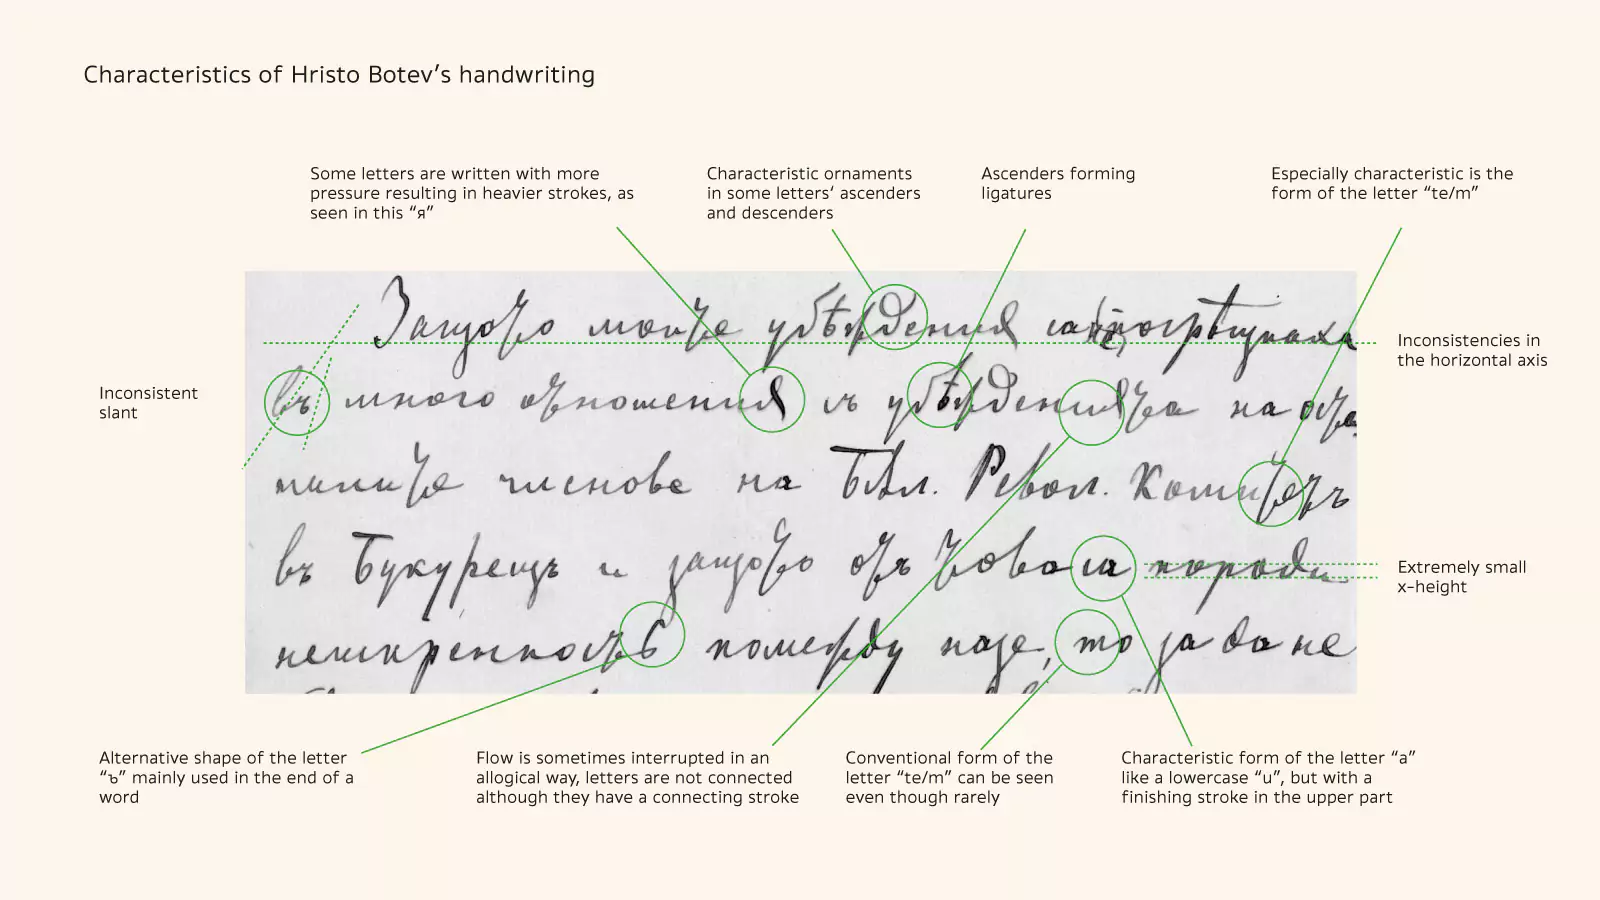 Characteristics of Hristo Botev’s handwriting
Some letters are written with more
pressure resulting in heavier strokes, as
seen in this “я”
Characteristic ornaments
in some letters‘ ascenders
and descenders
Ascenders forming
ligatures
Especially characteristic is the
form of the letter “te/m”
Inconsistent
slant
Защото моите убѣждения
въ много отношения съ убѣжденията на
членове на Бъл. Револ. Комитетъ
въ Букурещъ и защото отъ това
неискренность помежду
, то за да не
Inconsistencies in
the horizontal axis
Extremely small
x-height
Alternative shape of the letter
“ъ” mainly used in the end of a
word
Flow is sometimes interrupted in an
allogical way, letters are not connected
although they have a connecting stroke
Conventional form of the
letter “te/m” can be seen
even though rarely
Characteristic form of the letter “a”
like a lowercase “u”, but with a
finishing stroke in the upper part